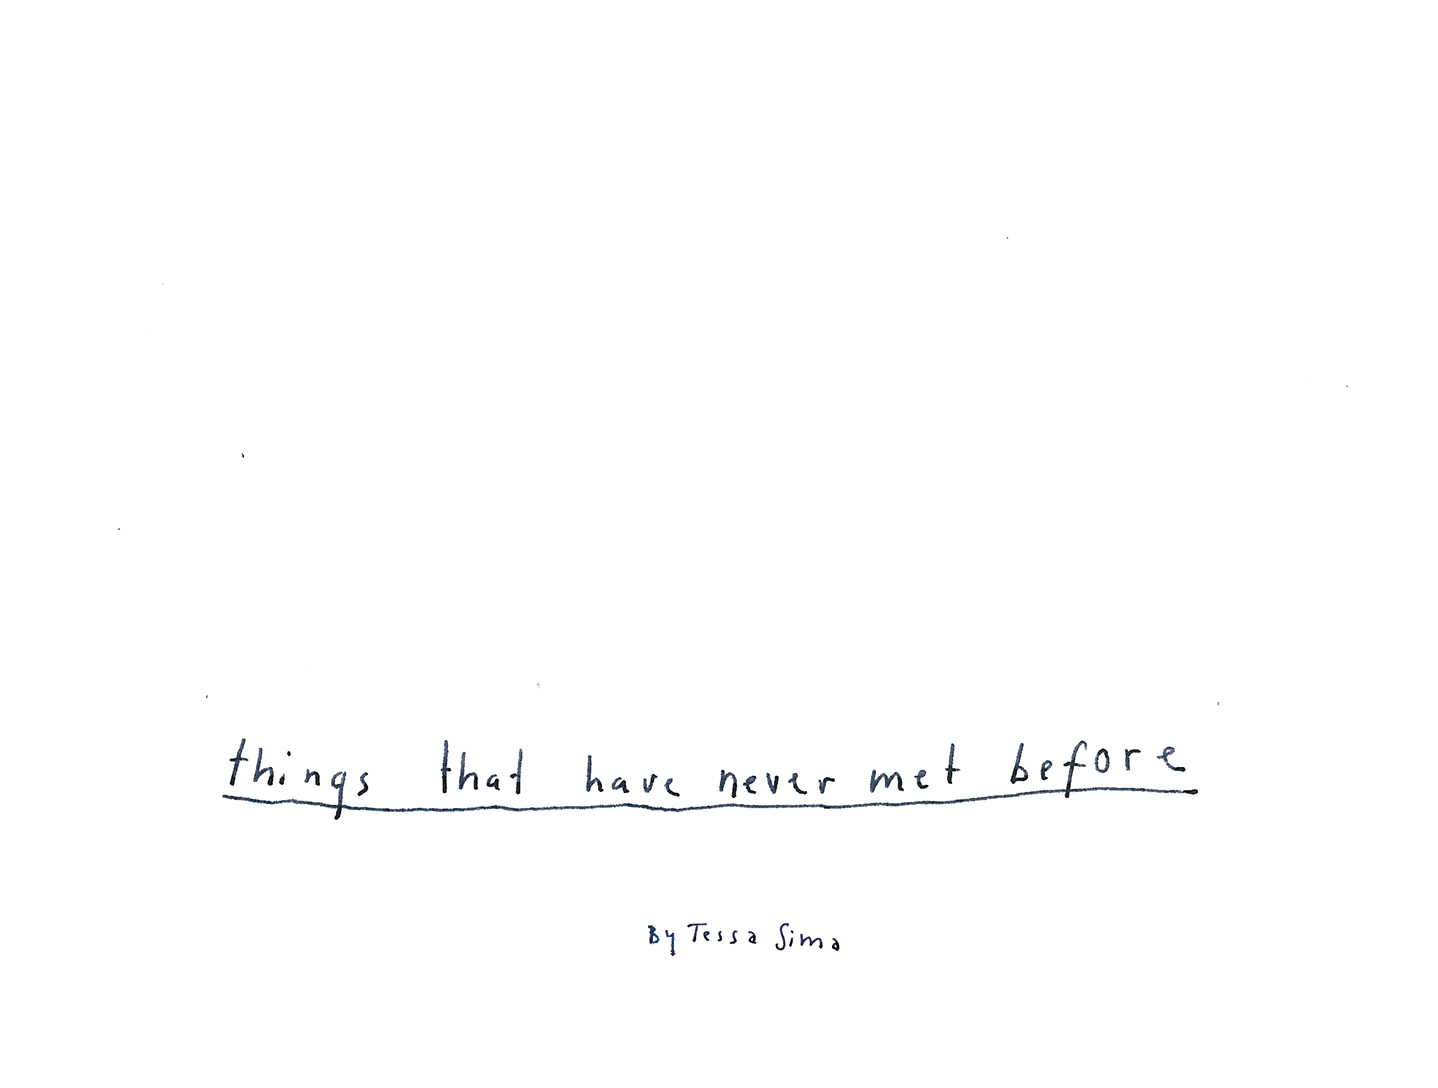 things that have never met before
By Tessa Sima